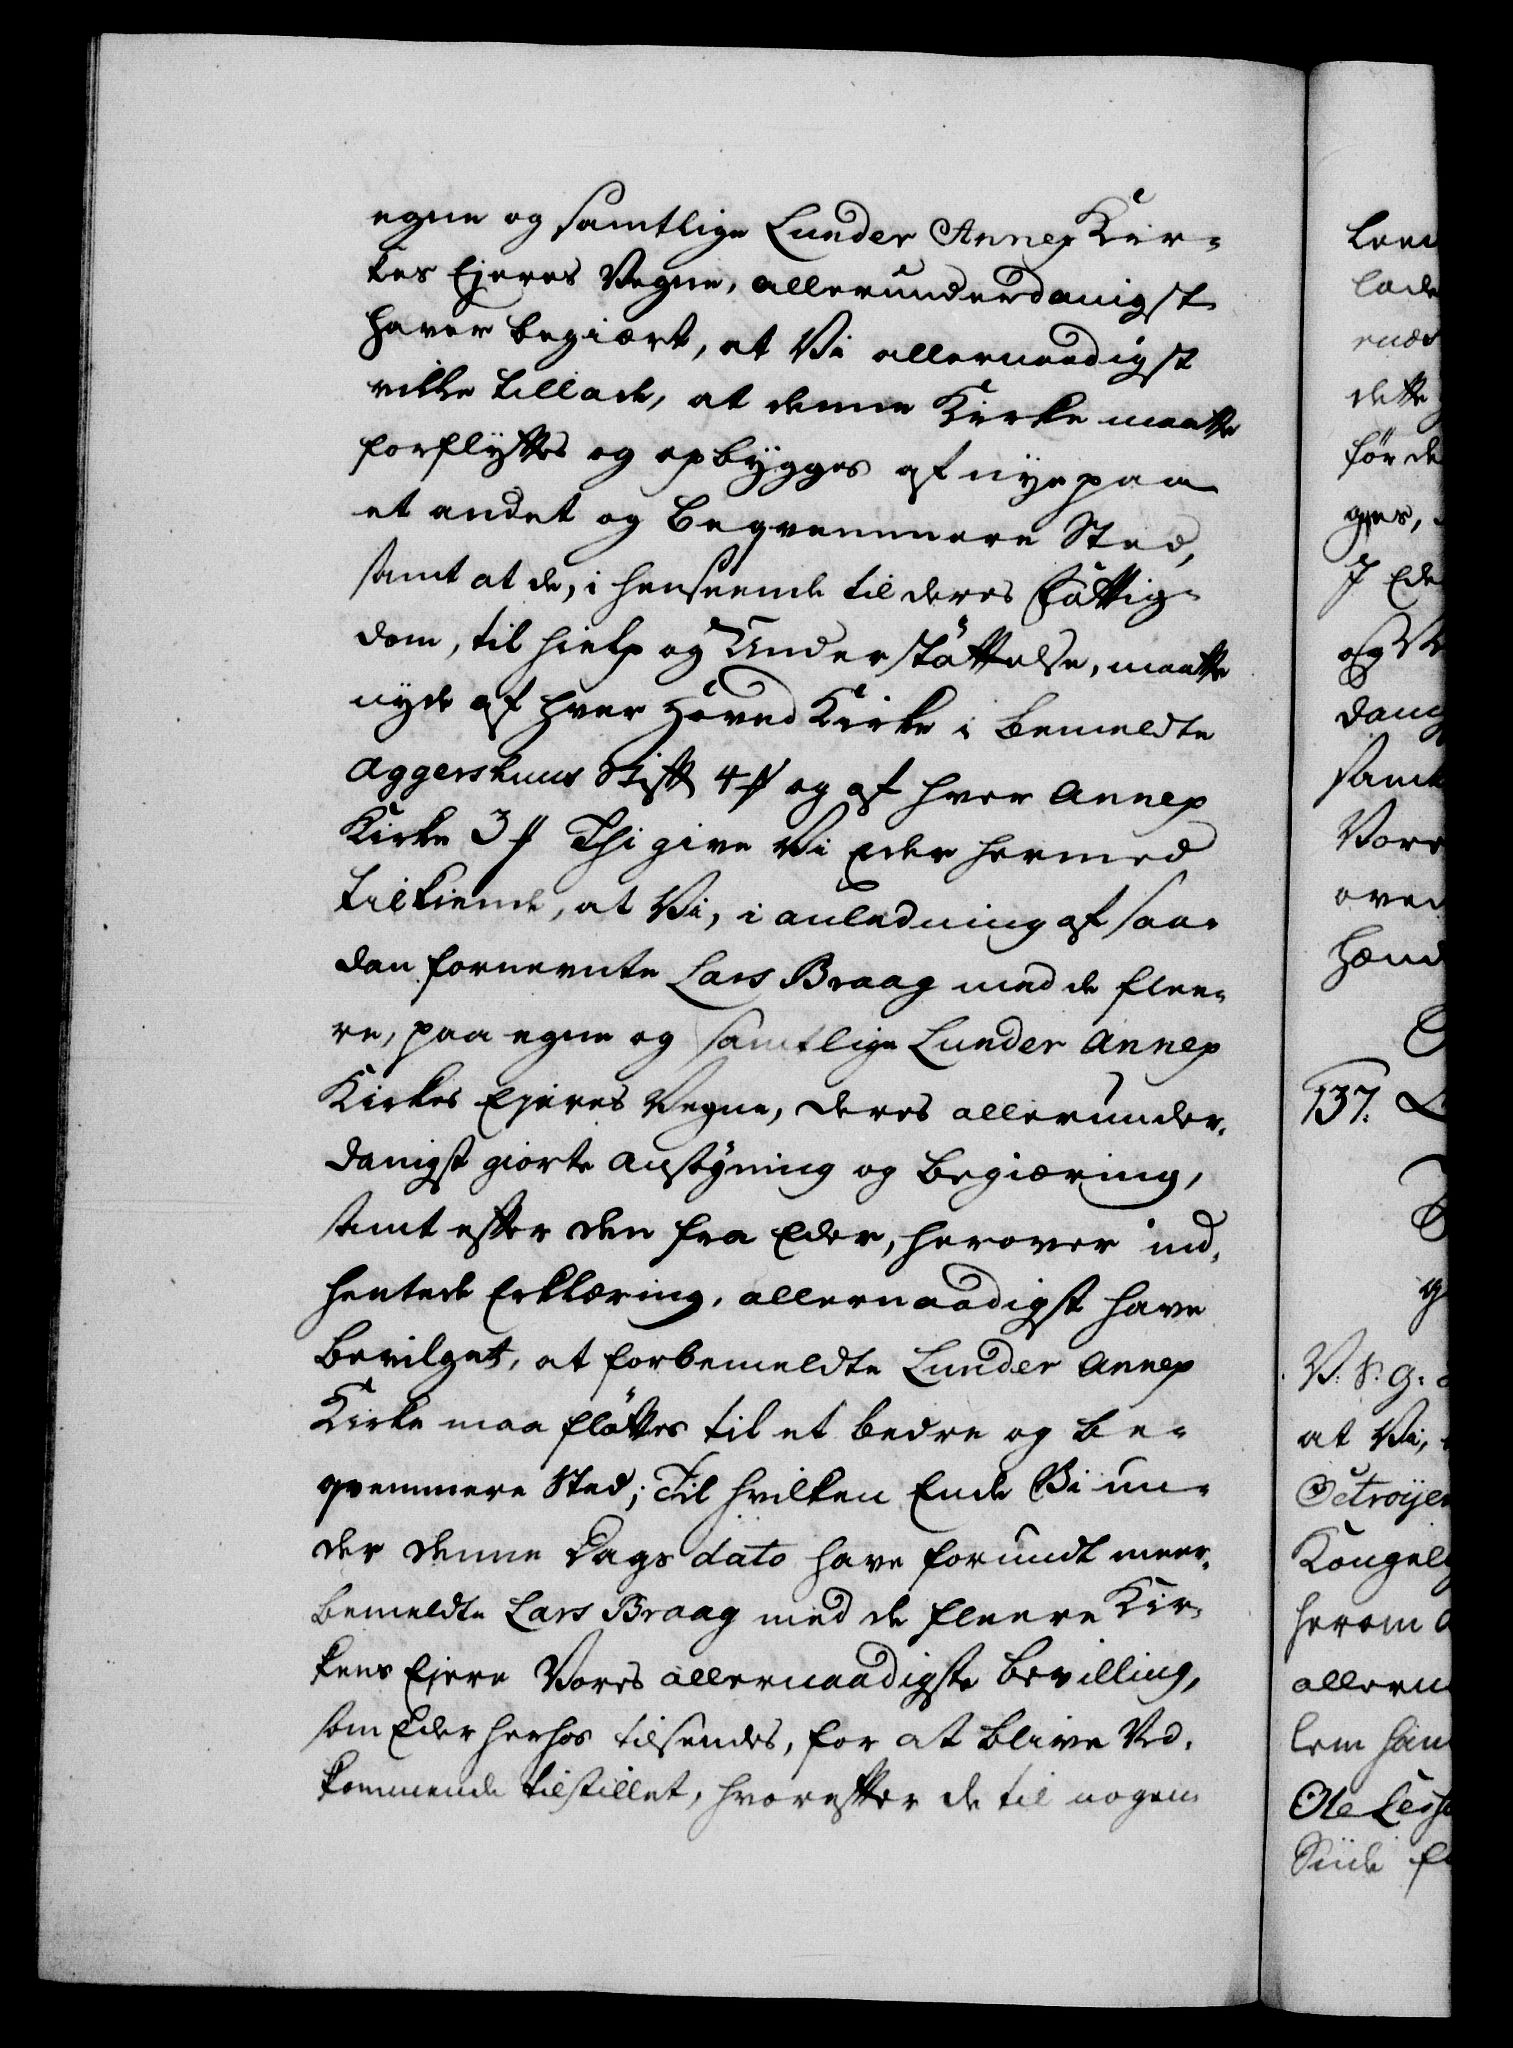 egne og samtlige Lunder Annex Kir-
kes Ejeres Vegne, allerunderdanigst
haver begiært, at Vi allernaadigst
ville tillade, at denne Kirke maatte
forflyttes og opbygges af nye paa
et andet og beqvemmere Sted,
samt at de, i henseende til deres Fattig-
dom, til hielp og Understøttelse, maatte
nyde af hver Hoved Kirke i bemeldte
Aggershuus Stift 4 ß og af hver Annex
Kirke 3 ß Thi give Vi Eder hermed
tilkiende, at Vi, i anledning af saa-
dan fornevnte Lars Braag med de flee-
re, paa egne og samtlige Lunder Annex
Kirkes Ejeres Vegne, deres allerunder-
danigst giorte Ansøgning og begiæring,
samt efter den fra Eder, herover ind-
hentede Erklæring, allernaadigst have
bevilget, at forbemeldte Lunder Annex
Kirke maa fløttes til et bedre og be-
qvemmere Sted; Til hvilken Ende Vi un-
der denne Dags dato have forundt meer-
bemeldte Lars Braag med de fleere Kir-
kens Ejere Vores allernaadigste Bevilling,
som Eder herhos tilsendes, for at blive Ved-
kommende tilstillet, hvorefter de til nogen
137.
V: S: G:
at Vi,
Octroijer
Kongel
herom